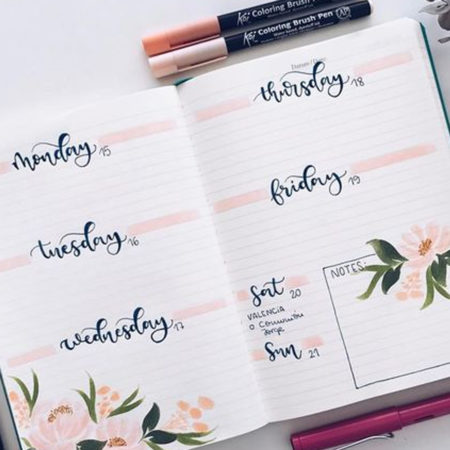 Koi Coloring Brush Pen
Koi Coloring Brush Pen
Datum / Date:
monday 15
tuesday 16
wednesday 17
thursday 18
friday 19
sat 20
VALENCIA
o Comunión
Jorge
sun 21
NOTES: